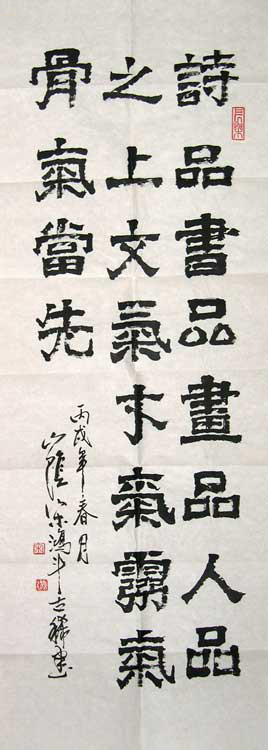 詩品書品畫品人品
之上文氣才氣霸氣
骨氣當先
丙戌年春月